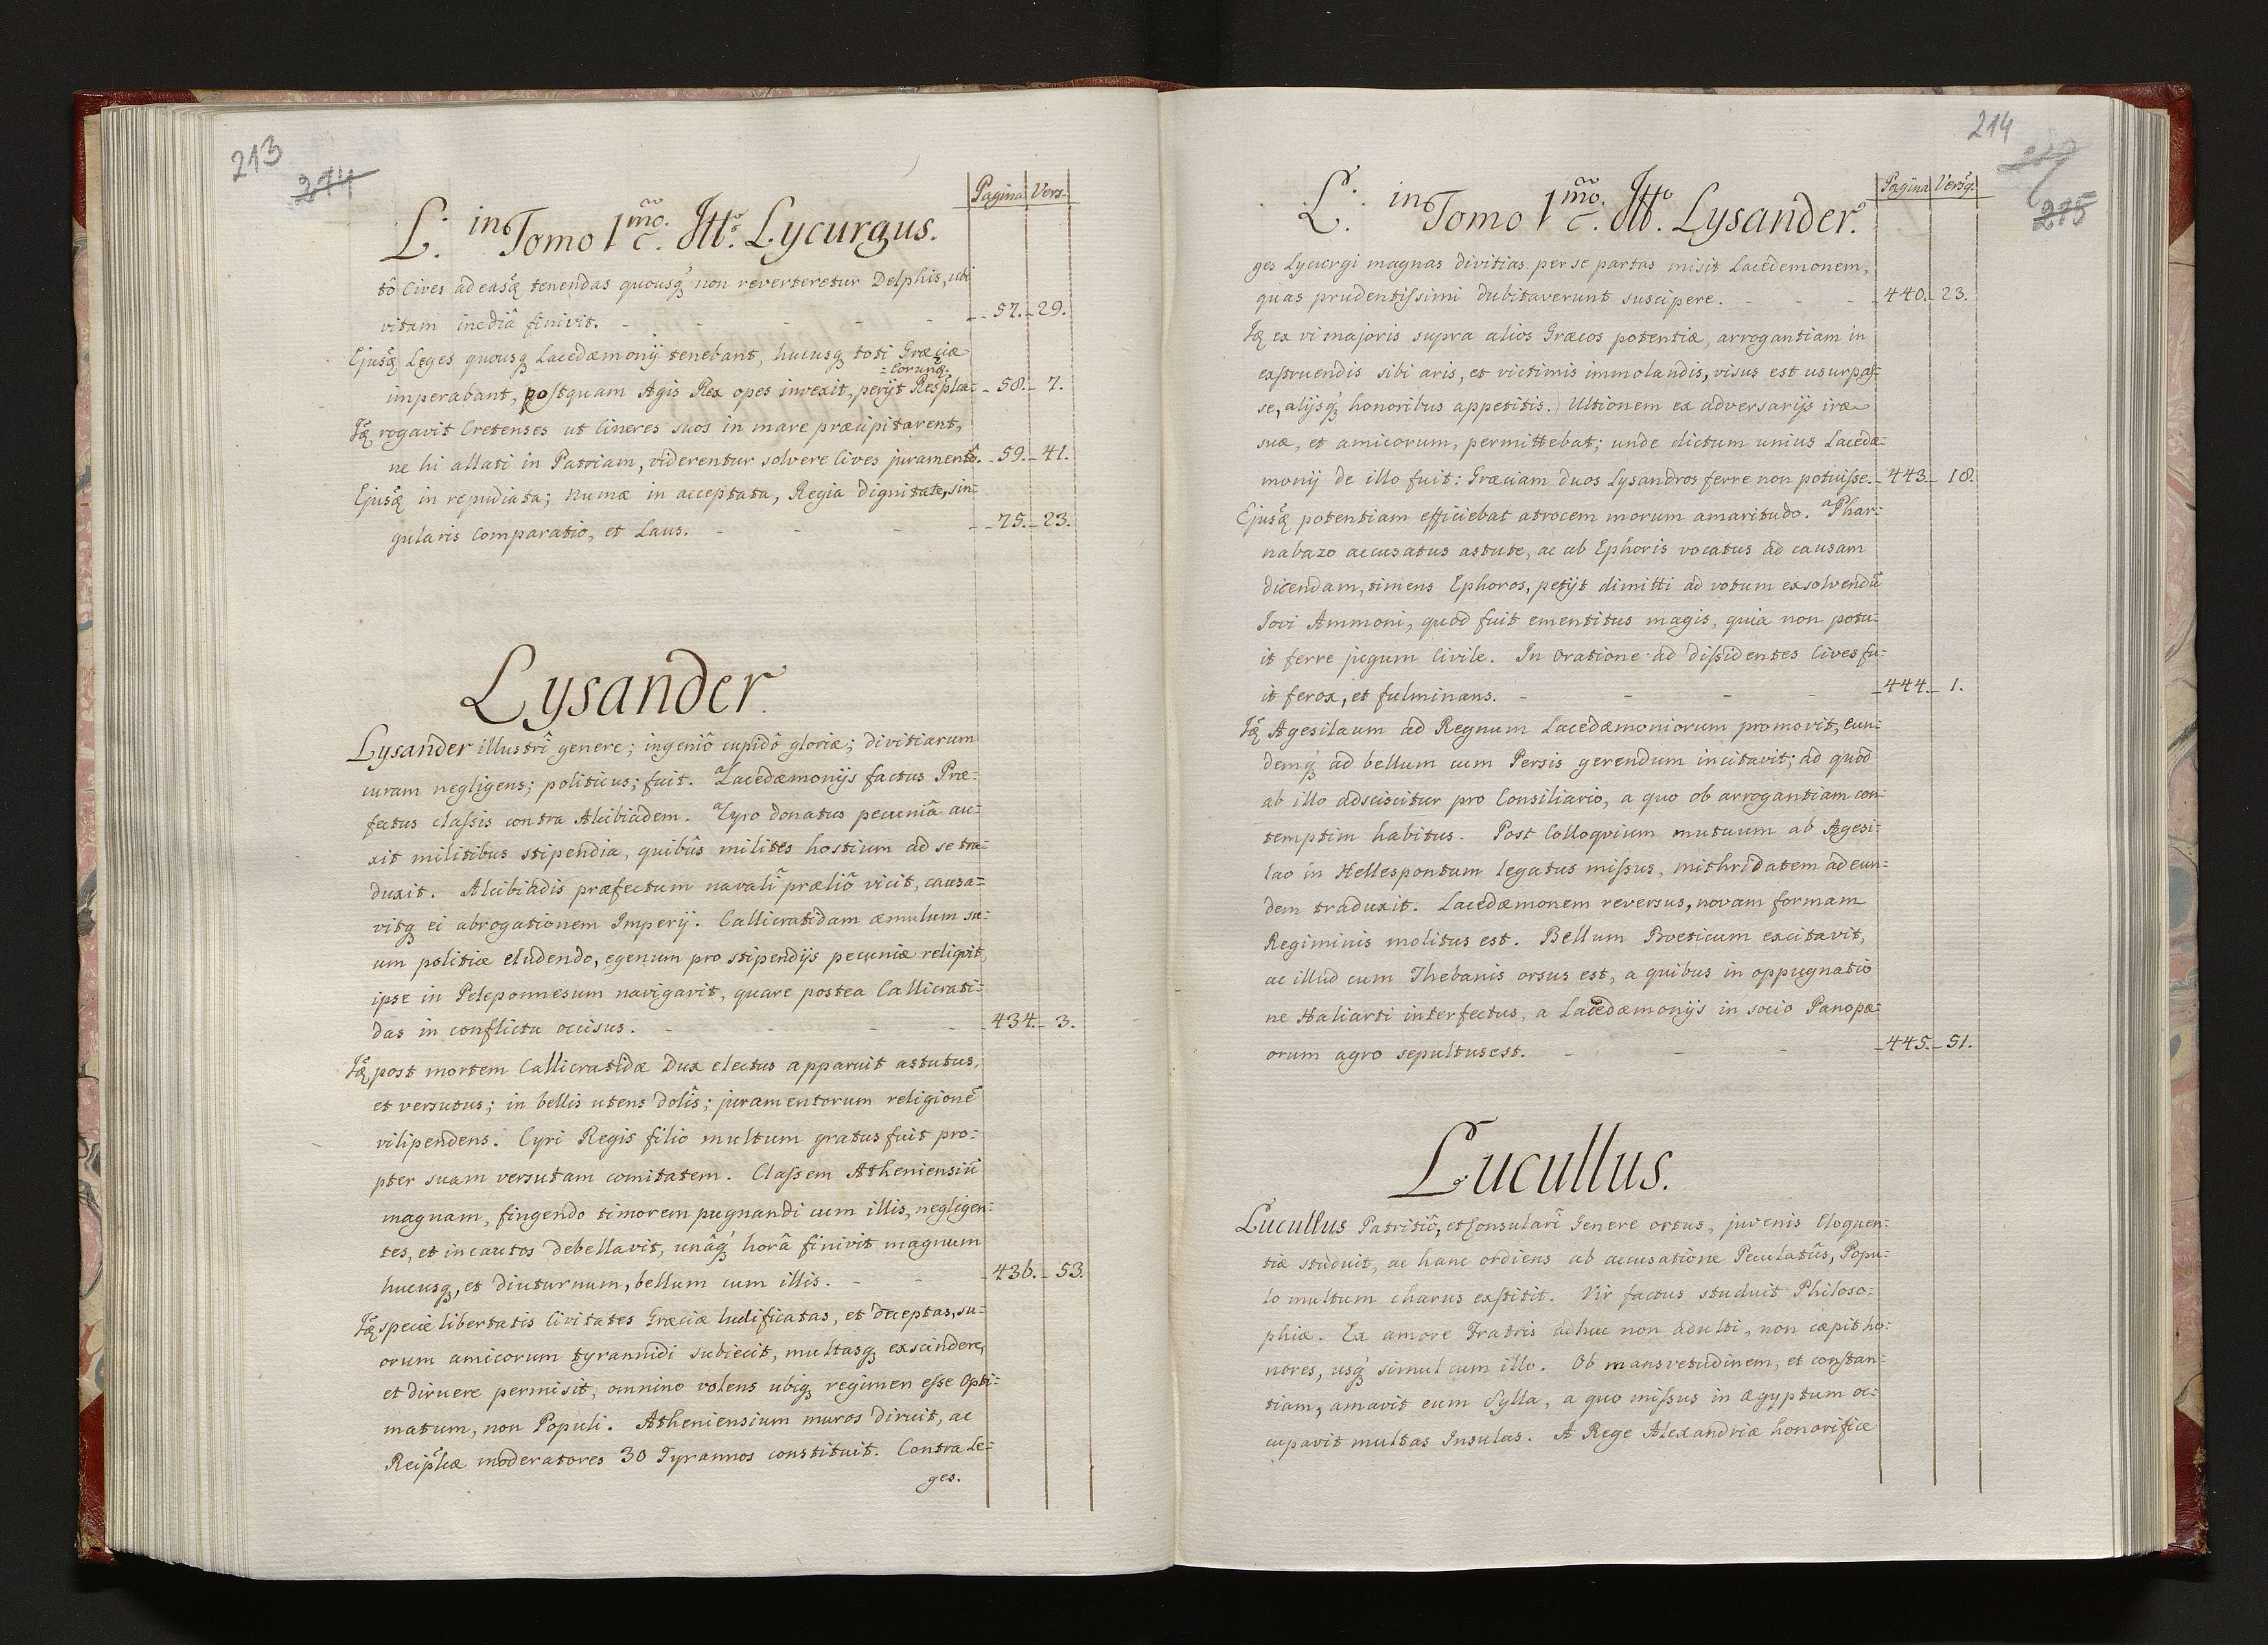 213
214
Pagina Vers.
L. in Tomo 1mo. Lycurgus.
tô Cives ad easq̃ tenendas quousq́ non reverteretur Delphis, ubi
vitam inediâ finivit. - - - - - 57. 29.
Ejusq̃ Leges quousq Lacedæmonij tenebant, hucusq toti Græciæ
= eorung.
imperabant, postquam Agis Rex opes invexit, perijt Resplca- 58. 7.
Iq̃ rogavit Cretenses ut Cineres suos in mare præcipitarent,
ne hi allati in Patriam, viderentur solvere Cives juramentô. 59. 41.
Ejusq̃ in repudiata; Numæ in acceptata, Regia Dignitate, sin=
gularis Comparatio, et Laus. - - - 75. 23.
Lysander
Lysander illustrî genere; ingeniô cupidô gloriæ; divitiarum
curam negligens; politicus; fuit. a Lacedæmonijs factus Præ=
fectus classis contra Alcibiadem. a Cyro donatus pecuniâ au=
xit militibus stipendia, quibûs milites hostium ad se tra=
duxit. Alcibiadis præfectum navalî præliô vicit, causa=
vitq ei abrogationem Imperij. Callicratidam æmulum su=
um politicæ eludendo, egenum pro stipendijs pecuniæ reliqvit,
ipse in Peleponnesum navigavit, quare postea Callicrati=
das in conflictu occisus. - - - - 434. 3.
Iq̃ post mortem Callicratidæ Dux electus apparuit astutus,
et versutus; in bellis utens dolis; juramentorum religionẽ
vilipendens. Cyri Regis filio multum gratus fuit pro=
pter suam versutam comitatem. Classem Atheniensiũ
magnam, fingendo timorem pugnandi cum illis, negligen=
tes, et incautos debellavit, unâq́ horâ finivit magnum
hucusq, et diuturnum, bellum cum illis. - - 436. 53.
Iq̃ specie libertatis Civitates Græciæ ludificatas, et deceptas, su=
orum amicorum tyrannidi subiecit, multasq exscindere,
et diruere permisit, omnino volens ubiq regimen esse Opti=
matum, non Populi. Atheniensium muros diruit, ac
Reiplcæ moderatores 30 Tyrannos constituit. Contra Le=
ges.
214
215
Pagina Versq.
L. in Tomo 1mo. Lysander.
ges Lycurgi magnas divitias per se partas misit Lacedemonem,
quas prudentissimi dubitaverunt suscipere. - - - 440. 23.
Iq̃ ex vi majoris supra alios Græcos potentiæ, arrogantiam in
exstruendis sibi aris, et victimis immolandis, visus est usurpas=
se, alijsq́ honoribus appetitis. Ultionem ex adversarijs iræ
suæ, et amicorum, permittebat; unde dictum unius Lacedæ=
monij de illo fuit: Græciam duos Lysandros ferre non potuisse. 443. 18.
Ejusq̃ potentiam efficiebat atrocem morum amaritudo. a Phar=
nabazo accusatus astute, ac ab Ephoris vocatus ad causam
dicendam, timens Ephoros, petijt dimitti ad votum exsolvendũ
Jovi Ammoni, quod fuit ementitus magis, quia non potu=
it ferre jugum Civile. In Oratione ad dissidentes Cives fu=
it ferox, et fulminans. - - - - 444. 1.
Iq̃ Agesilaum ad Regnum Lacedæmoniorum promovit, eun=
demq́ ad bellum cum Persis gerendum incitavit; ad quod
ab illo adsciscitur pro Consiliario, a quo ob arrogantiam con=
temptim habitus. Post Colloqvium mutuum ab Agesi=
lao in Hellespontum legatus missus, mithridatem ad eun=
dem traduxit. Lacedæmonem reversus, novam formam
Regiminis molitus est. Bellum Boeticum excitavit,
ac illud cum Thebanis orsus est, a quibus in oppugnatio
ne Haliarti interfectus, a Lacedæmonijs in socio Panopæ=
orum agro sepultus est. - - - 445. 51.
Lucullus.
Lucullus Patritiô, et Consularî Genere ortus, juvenis Eloquen=
tiæ studuit, ac hanc ordiens ab accusatione Peculatûs, Popu=
lo multum charus exstitit. Vir factus studuit Philoso=
phiæ. Ex amore Fratris adhuc non adulti, non cæpit ho=
nores, usq́ simul cum illo. Ob mansvetudinem, et constan=
tiam, amavit eum Sylla, a quo missus in Ægyptum oc=
cupavit multas Insulas. A Rege Alexandriæ honorificæ